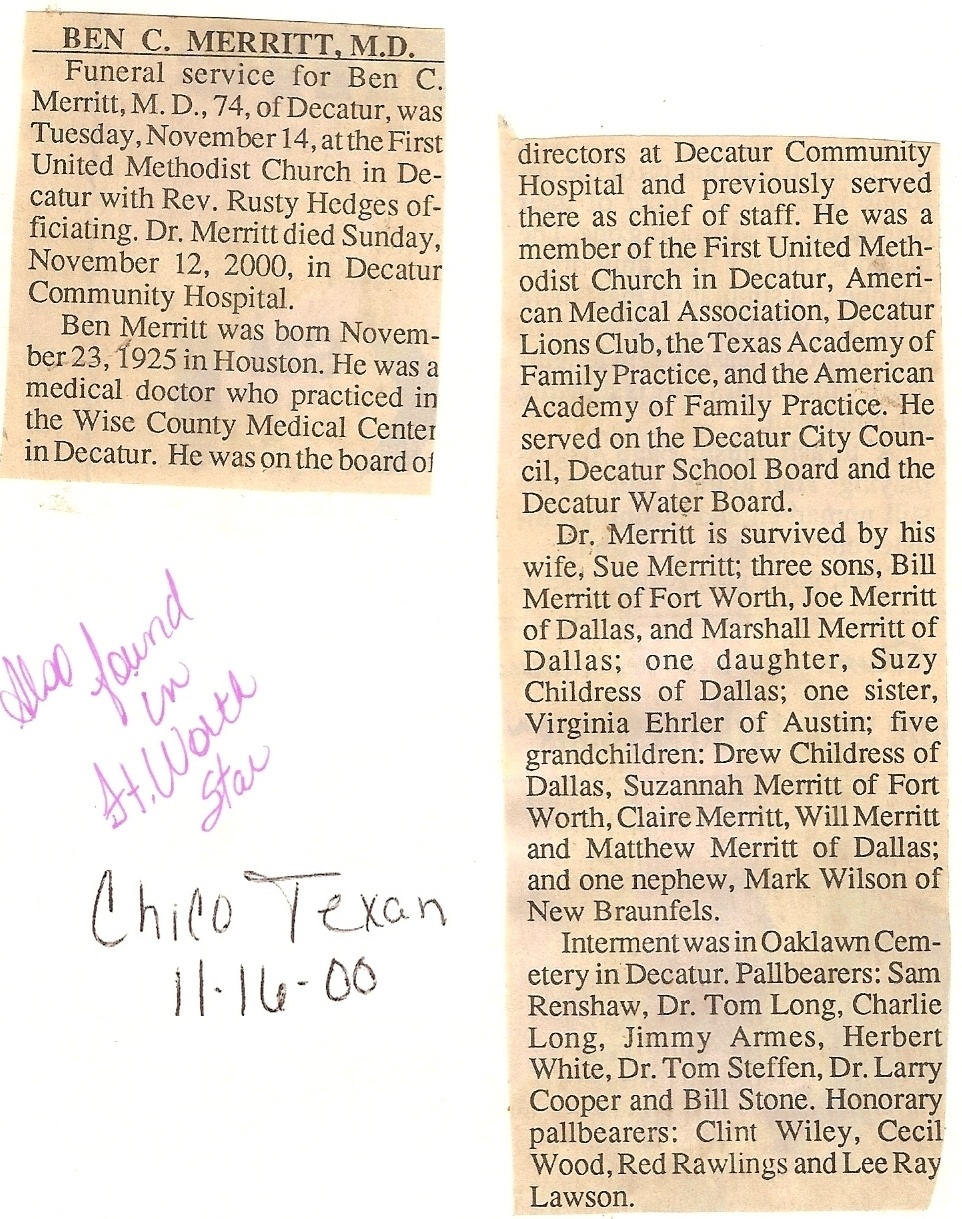 BEN C. MERRITT, M.D.
Funeral service for Ben C.
Merritt, M. D., 74, of Decatur, was
Tuesday, November 14, at the First
United Methodist Church in De-
catur with Rev. Rusty Hedges of-
ficiating. Dr. Merritt died Sunday,
November 12, 2000, in Decatur
Community Hospital.
Ben Merritt was born Novem-
ber 23, 1925 in Houston. He was a
medical doctor who practiced in
the Wise County Medical Center
in Decatur. He was on the board of
directors at Decatur Community
Hospital and previously served
there as chief of staff. He was a
member of the First United Meth-
odist Church in Decatur, Ameri-
can Medical Association, Decatur
Lions Club, the Texas Academy of
Family Practice, and the American
Academy of Family Practice. He
served on the Decatur City Coun-
cil, Decatur School Board and the
Decatur Water Board.
Dr. Merritt is survived by his
wife, Sue Merritt; three sons, Bill
Merritt of Fort Worth, Joe Merritt
of Dallas, and Marshall Merritt of
Dallas; one daughter, Suzy
Childress of Dallas; one sister,
Virginia Ehrler of Austin; five
grandchildren: Drew Childress of
Dallas, Suzannah Merritt of Fort
Worth, Claire Merritt, Will Merritt
and Matthew Merritt of Dallas;
and one nephew, Mark Wilson of
New Braunfels.
Interment was in Oaklawn Cem-
etery in Decatur. Pallbearers: Sam
Renshaw, Dr. Tom Long, Charlie
Long, Jimmy Armes, Herbert
White, Dr. Tom Steffen, Dr. Larry
Cooper and Bill Stone. Honorary
pallbearers: Clint Wiley, Cecil
Wood, Red Rawlings and Lee Ray
Lawson.
Also found
in
Ft. Worth
Star
Chico Texan
11-16-00